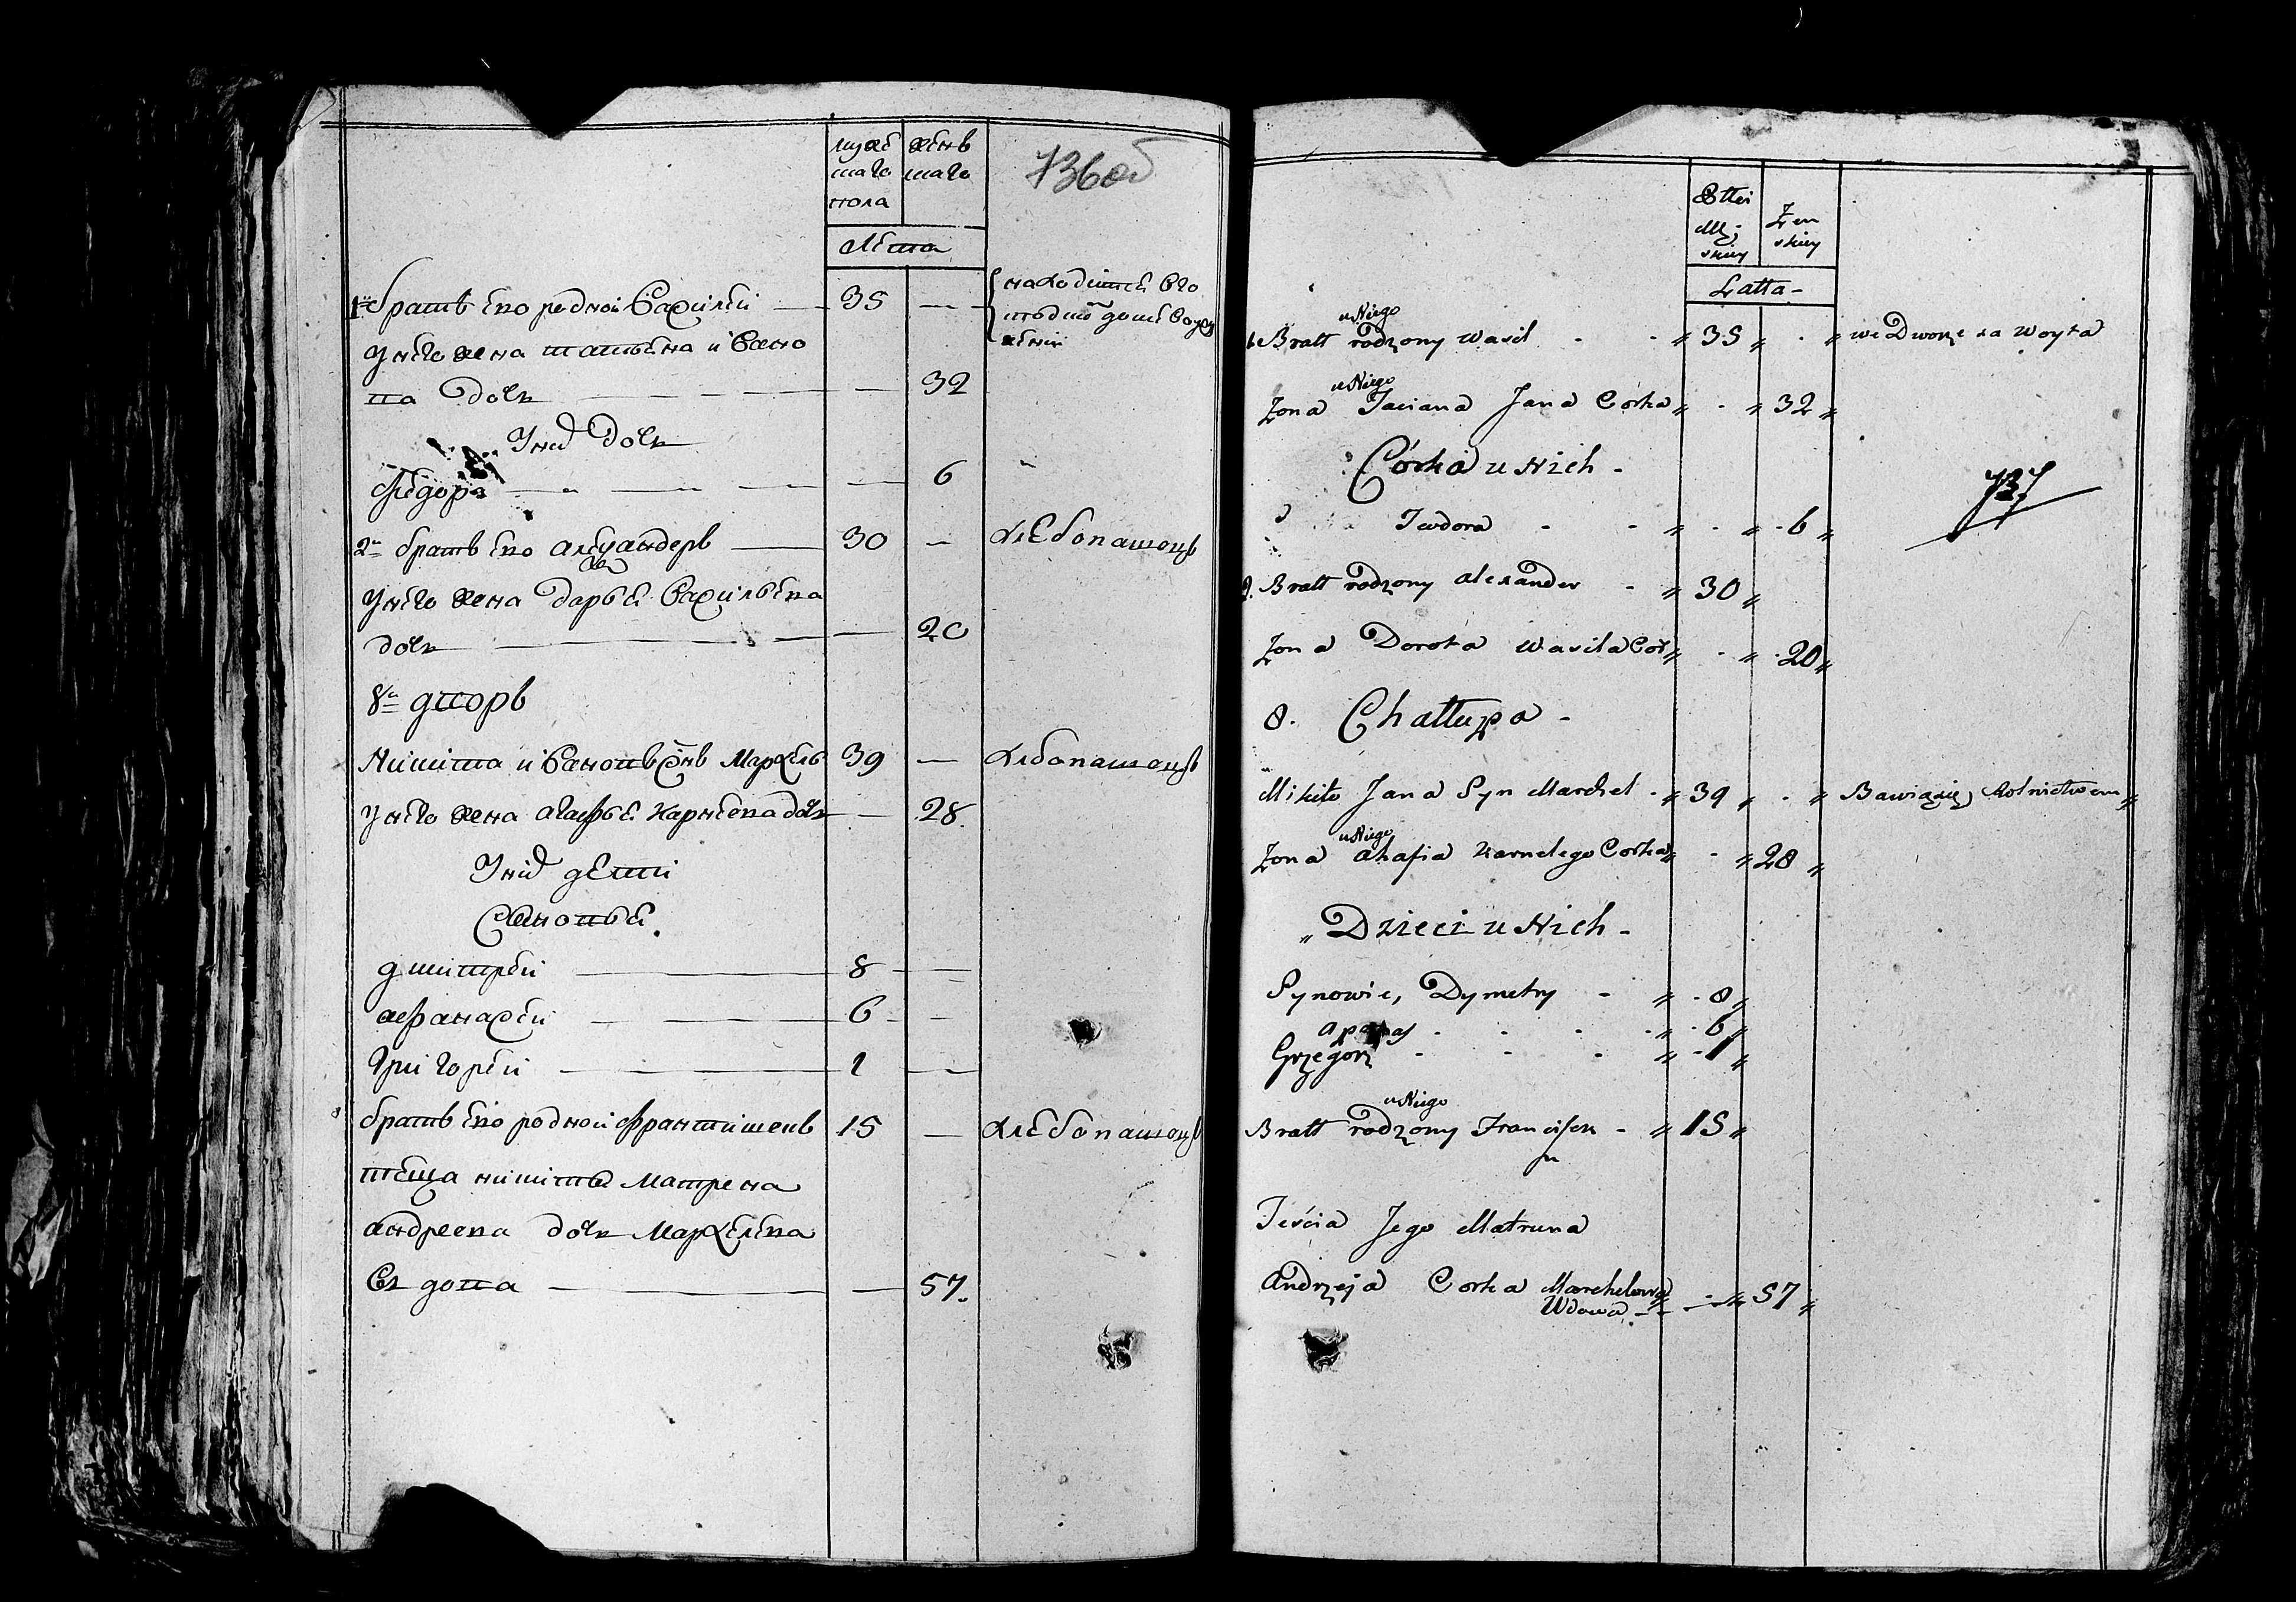 муже
скаго
пола
женъ
скаго
736об
Лета
1й братъ ево родной Василей — 35 —
находитсе в го
сподском доме
У него жена татьяна ивано
ва дочь — — 32
У них дочь
Федора — — 6
2й братъ ево александеръ — 30 — хлебопашецъ
У него жена дарья Васильева
дочь — — 20
8й дворъ
Микита ивановъ сынъ Мархель 39 — хлебопашецъ
У него жена агафья карнеева дочь — 28
У них дети
Сыновья
дмитрей — 8 —
афанасей — 6 —
григорей — 1 —
братъ ево родной францишекъ 15 — хлебопашецъ
теща микиты матрена
андреева дочь Мархелева
вдова — — 57
Płci
Mę-
skiey
Żen
skiey
Latta
u Niego
1. Bratt rodzony Wasil - - 35 - we Dworze za Woyta
u Niego
Zona Taciana Jana Corka - 32
Córka u Nich -
737
Teodora - - - 6
2. Bratt rodzony Alexander - 30
Zona Dorota Wasila Cor - 20
8. Chałłupa -
Mikita Jana Syn Marchel - 39 - Bawi się Rolnictwem
u Niego
Zona Ahafia Karnelego Corka - 28
Dzieci u Nich -
Synowie, Dymetry - 8
Apanas - - - 6
Grzegorz - - - 1
u Niego
Bratt rodzony Franciszek - 15
Teścia Jego Matruna
Andrzeja Corka Marchelowa
Wdowa - - 57